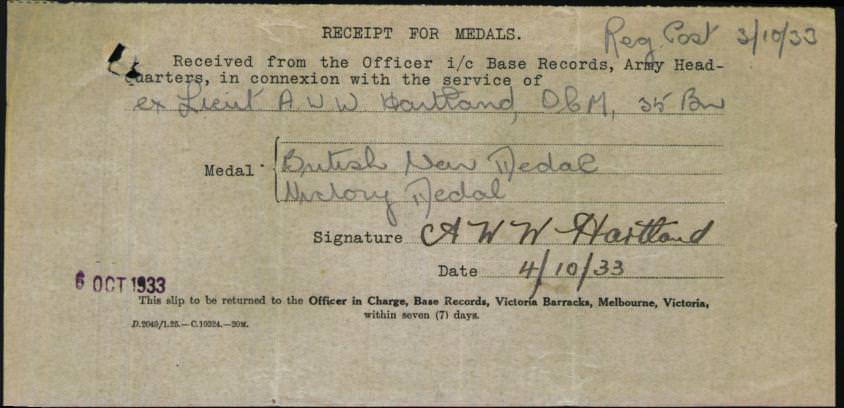 RECEIPT FOR MEDALS.
Reg Post 3/10/33
Received from the Officer i/c Base Records, Army Head-
quarters, in connexion with the service of
ex Lieut A W W Hartland, DCM, 35 Bn
Medal British War Medal
Victory Medal
Signature A W W Hartland
Date 4/10/33
6 OCT 1933
This slip to be returned to the Officer in Charge, Base Records, Victoria Barracks, Melbourne, Victoria,
within seven (7) days.
D.2049/1.25.—C.10324.—20M.